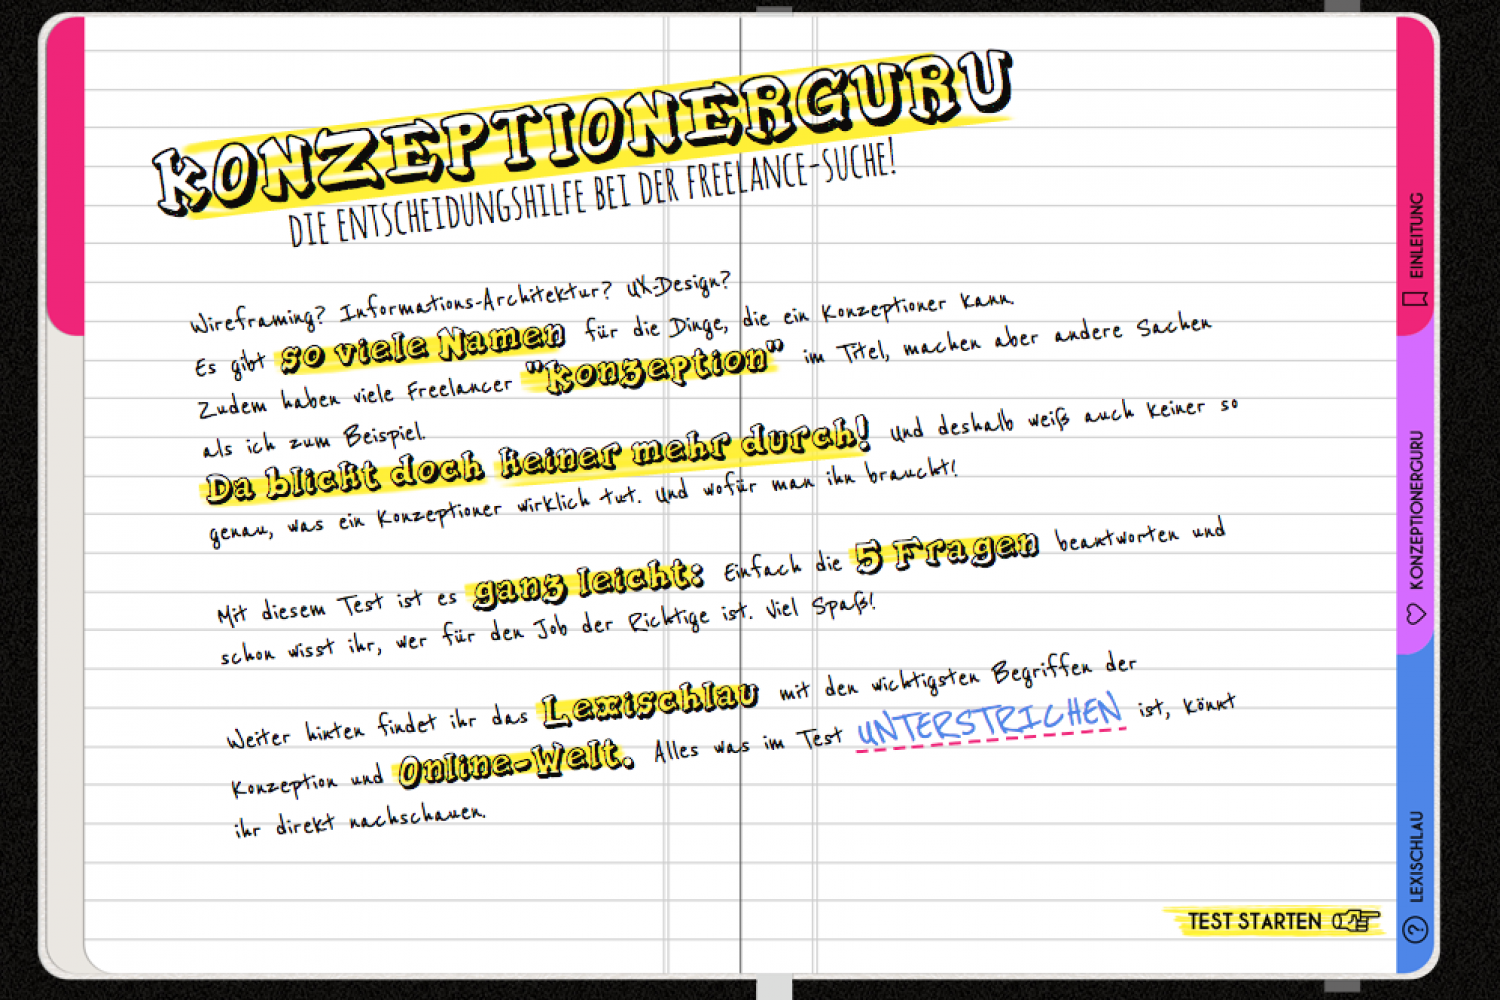 KONZEPTIONERGURU
DIE ENTSCHEIDUNGSHILFE BEI DER FREELANCE-SUCHE!
Wireframing? Informations-Architektur? UX-Design?
Es gibt so viele Namen für die Dinge, die ein Konzeptioner kann.
Zudem haben viele Freelancer "Konzeption" im Titel, machen aber andere Sachen
als ich zum Beispiel.
Da blickt doch keiner mehr durch! Und deshalb weiß auch keiner so
genau, was ein Konzeptioner wirklich tut. Und wofür man ihn braucht!
Mit diesem Test ist es ganz leicht: Einfach die 5 Fragen beantworten und
schon wisst ihr, wer für den Job der Richtige ist. Viel Spaß!
Weiter hinten findet ihr das Lexischlau mit den wichtigsten Begriffen der
Konzeption und Online-Welt. Alles was im Test UNTERSTRICHEN ist, könnt
ihr direkt nachschauen.
TEST STARTEN
EINLEITUNG
KONZEPTIONERGURU
LEXISCHLAU